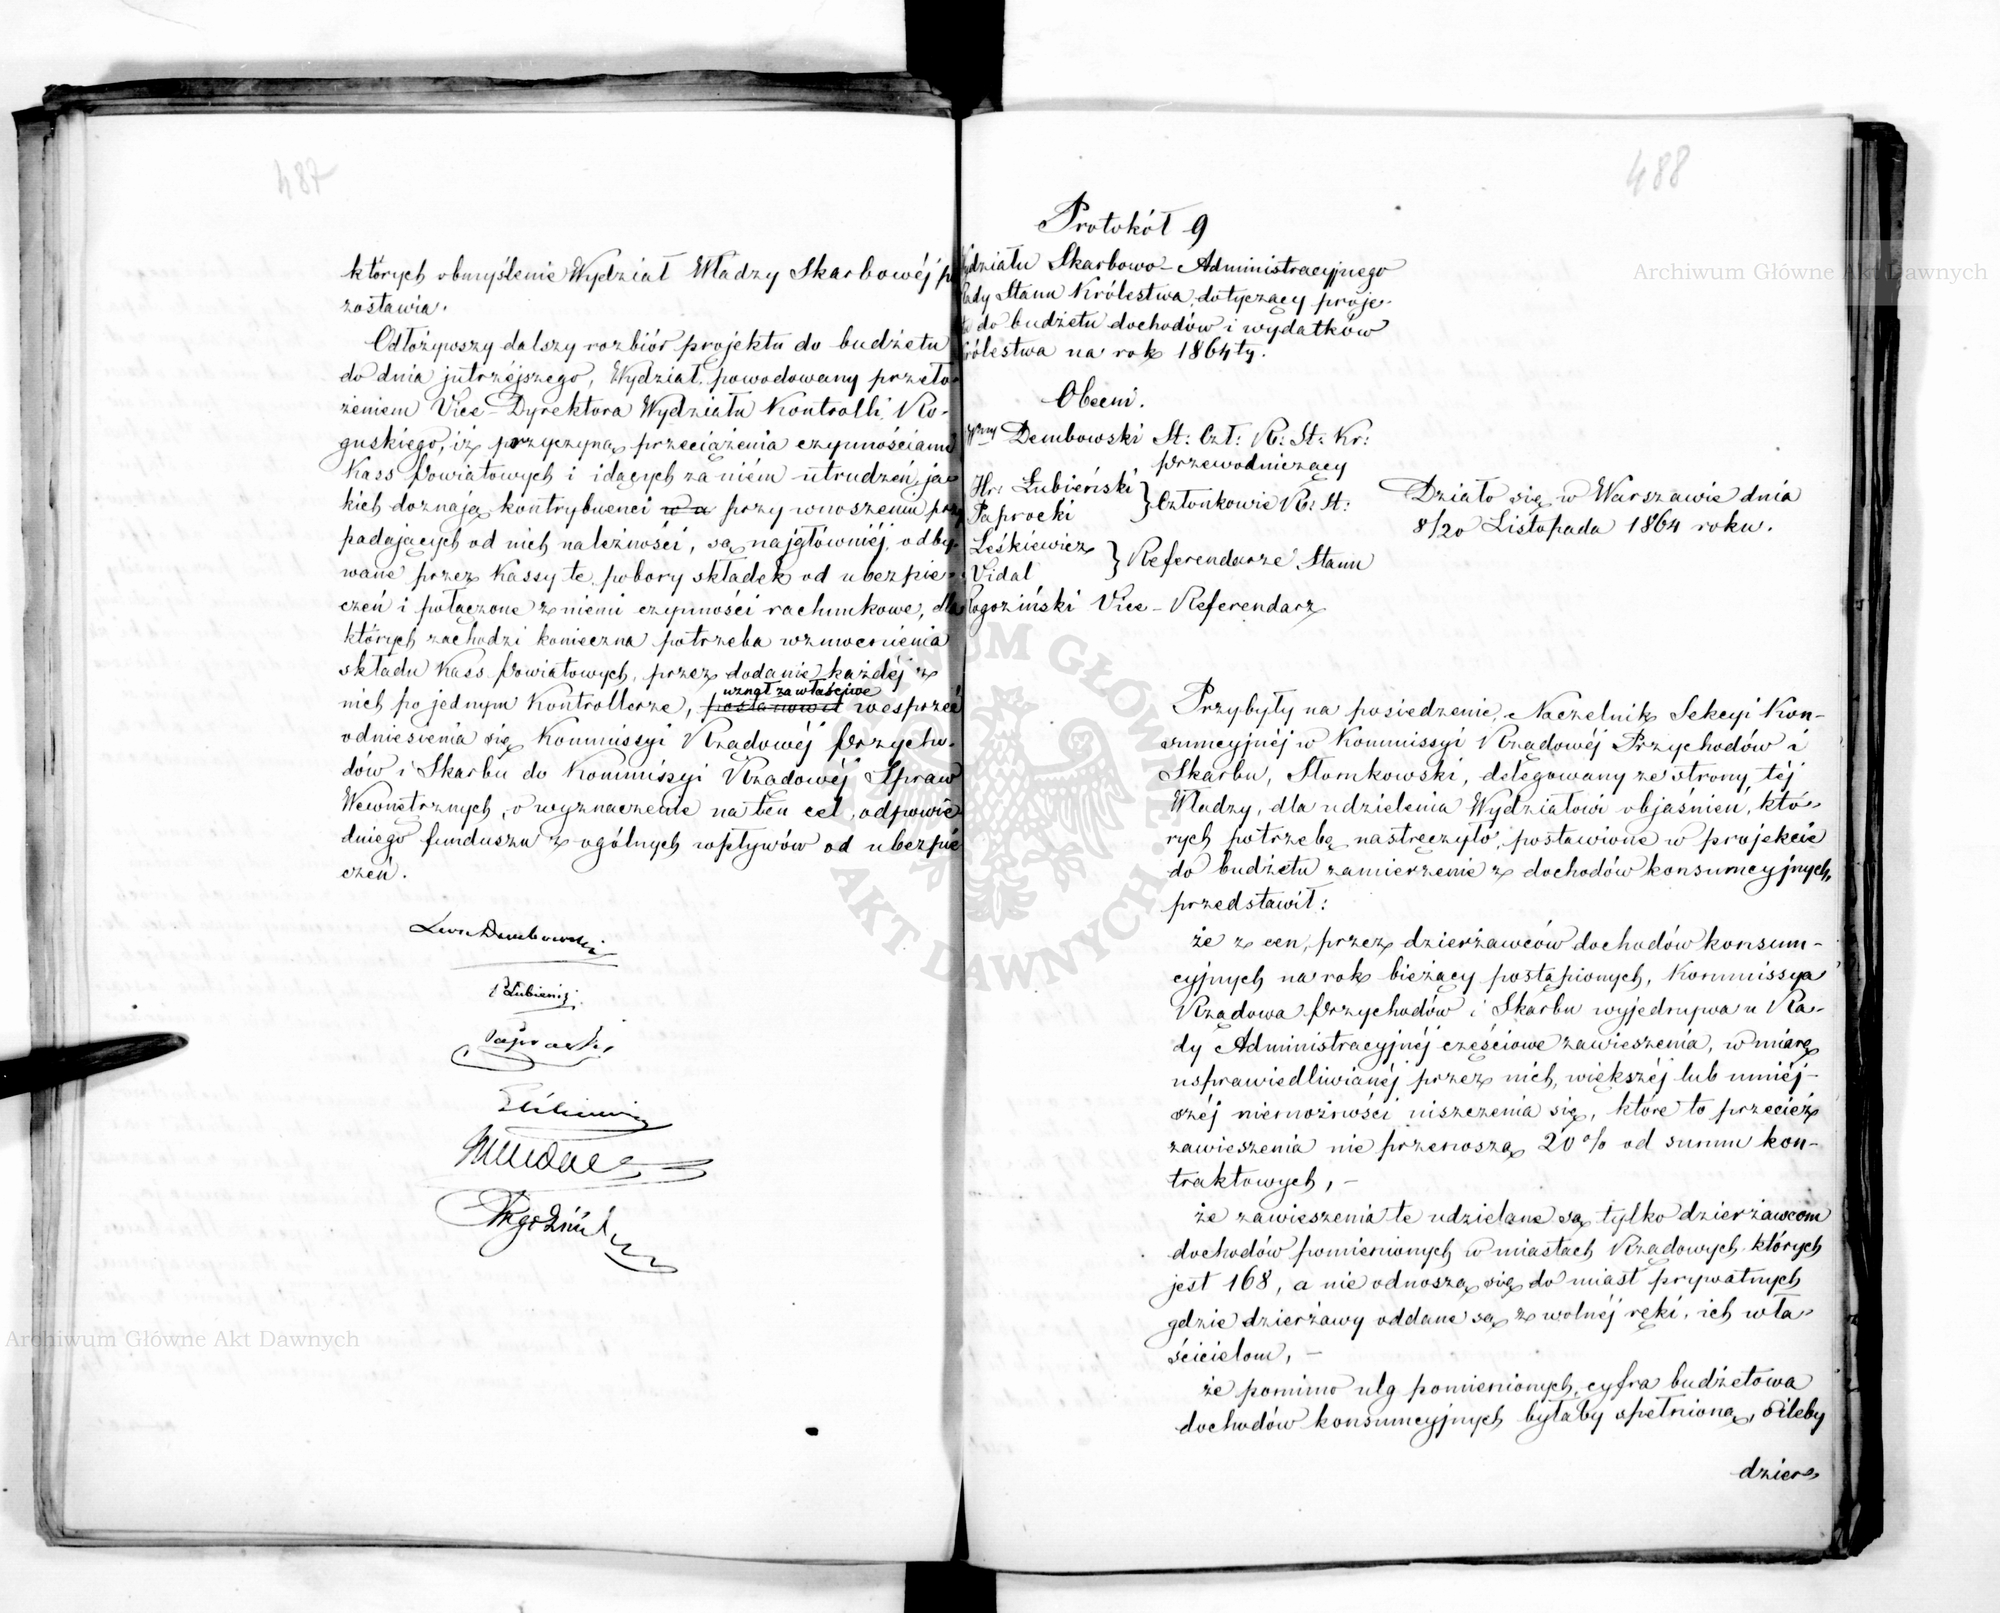 487
których obmyślenie Wydział Władzy Skarbowéj po
zostawia.
Odłożywszy dalszy rozbiór projektu do budżetu
do dnia jutrzéjszego, Wydział, powodowany przeło-
żeniem Vice-Dyrektora Wydziału Kontrolli, Ro-
guskiego, iż przyczyną przeciążenia czynnościami
Kass Powiatowych i idących za niém utrudzeń, ja-
kich doznają kontrybuenci w a przy wnoszeniu przy
padających od nich należności, są najgłówniéj, odby-
wane przez Kassy te pobory składek od ubezpie-
czeń i połączone z niemi czynności rachunkowe, dla
których zachodzi konieczna potrzeba wzmocnienia
składu Kass Powiatowych, przez dodanie każdéj z
nich po jednym Kontrollerze, postanowił wesprzeć
uznał za właściwe
odniesienia się Kommissyi Rządowéj Przycho-
dów i Skarbu do Kommissyi Rządowéj Spraw
Wewnętrznych, o wyznaczenie na ten cel, odpowie
dniego funduszu z ogólnych wpływów od ubezpie
czeń.
Leon Dembowski
Łubieński
Paprocki
Vidal
Rogoziński
488
Protokół 9
Wydziału Skarbowo-Administracyjnego
Rady Stanu Królestwa, dotyczący proje-
ktu do budżetu dochodów i wydatków
Królestwa na rok 1864ty.
Obecni.
Dembowski St: Czł: R: St: Kr:
przewodniczący
Hr: Łubieński
Paprocki } Członkowie R: St:
Leśkiewicz
Vidal } Referendarze Stanu
Rogoziński Vice-Referendarz
Działo się w Warszawie dnia
8/20 Listopada 1864 roku.
Przybyły na posiedzenie, Naczelnik Sekcyi Kon-
sumcyjnéj w Kommissyi Rządowéj Przychodów i
Skarbu, Słomkowski, delegowany ze strony téj
Władzy, dla udzielenia Wydziałowi objaśnień, któ-
rych potrzebę nastręczyło, postawione w projekcie
do budżetu zamierzenie z dochodów konsumcyjnych,
przedstawił:
że z cen, przez dzierżawców dochodów konsum-
cyjnych na rok bieżący postąpionych, Kommissya
Rządowa Przychodów i Skarbu wyjednywa u Ra-
dy Administracyjnéj częściowe zawieszenia, w miarę
usprawiedliwianéj przez nich, większéj lub mniéj-
széj niemożności uiszczenia się, które to przecież
zawieszenia nie przenoszą 20% od summ kon-
traktowych, –
że zawieszenia te udzielane są tylko dzierżawcom
dochodów pomienionych w miastach Rządowych, których
jest 168, a nie odnoszą się do miast prywatnych
gdzie dzierżawy oddane są z wolnéj ręki, ich wła-
ścicielom, –
że pomimo ulg pomienionych, cyfra budżetowa
dochodów konsumcyjnych byłaby opełnioną, oileby
dzier-
Archiwum Główne Akt Dawnych
Archiwum Główne Akt Dawnych
ARCHIWUM GŁÓWNE AKT DAWNYCH